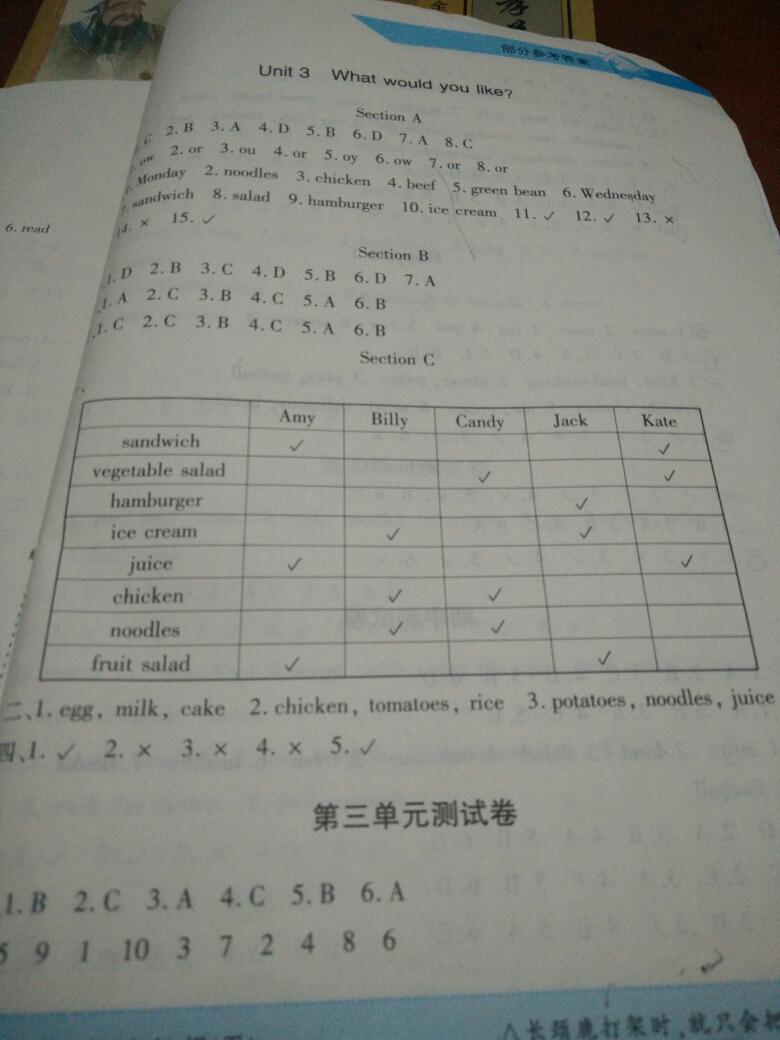 部分参考答案
Unit 3 What would you like?
Section A
C 2. B 3. A 4. D 5. B 6. D 7. A 8. C
ow 2. or 3. ou 4. or 5. oy 6. ow 7. or 8. or
1. Monday 2. noodles 3. chicken 4. beef 5. green bean 6. Wednesday
7. sandwich 8. salad 9. hamburger 10. ice cream 11. ✓ 12. ✓ 13. ×
14. × 15. ✓
6. read
Section B
1. D 2. B 3. C 4. D 5. B 6. D 7. A
1. A 2. C 3. B 4. C 5. A 6. B
1. C 2. C 3. B 4. C 5. A 6. B
Section C
Amy Billy Candy Jack Kate
sandwich ✓ ✓
vegetable salad ✓ ✓
hamburger ✓
ice cream ✓ ✓
juice ✓ ✓
chicken ✓ ✓
noodles ✓ ✓
fruit salad ✓ ✓
二、1. egg, milk, cake 2. chicken, tomatoes, rice 3. potatoes, noodles, juice
四、1. ✓ 2. × 3. × 4. × 5. ✓
第三单元测试卷
1. B 2. C 3. A 4. C 5. B 6. A
5 9 1 10 3 7 2 4 8 6
长颈鹿打架时,就只会把